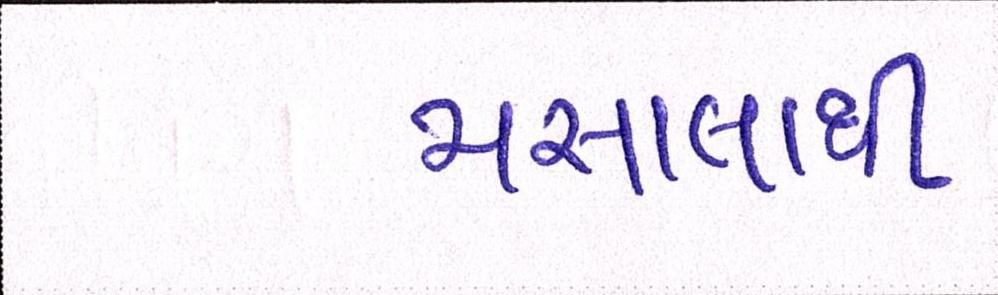 મસાલાથી